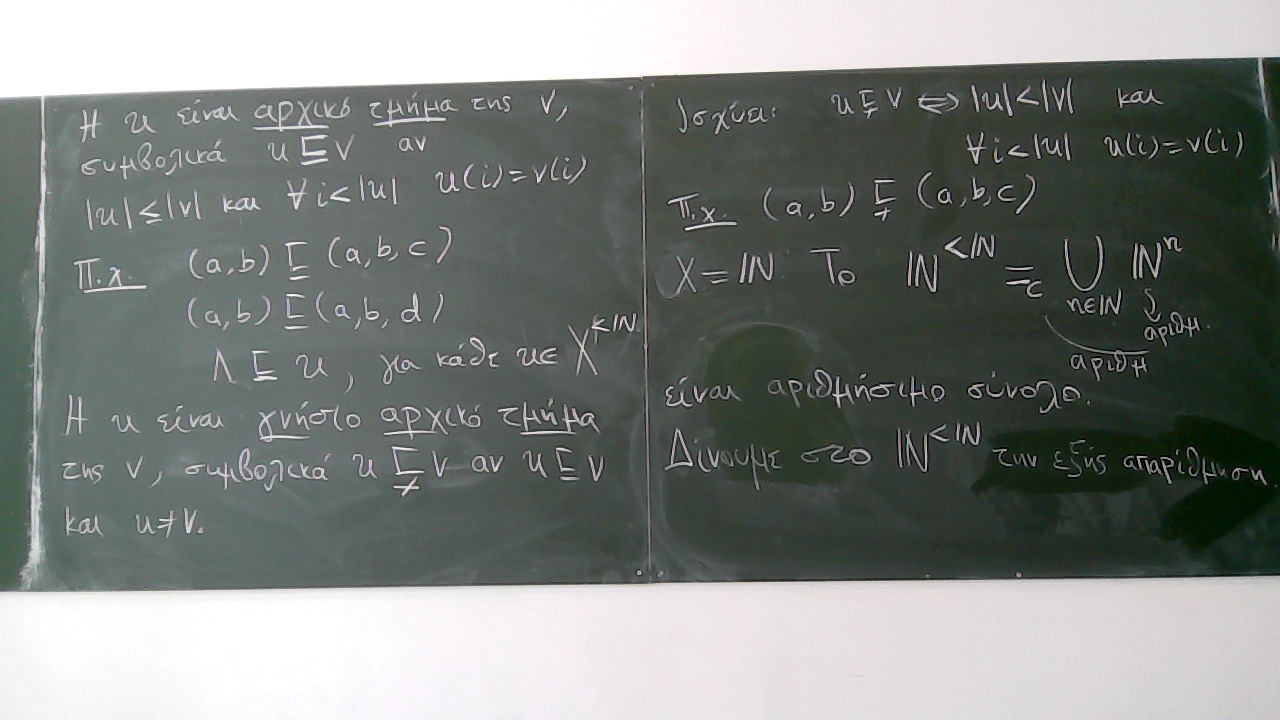 Η u είναι αρχικό τμήμα της v,
συμβολικά u ⊑ v αν
|u| ≤ |v| και ∀i<|u| u(i)=v(i)
Π.χ. (a,b) ⊑ (a,b,c)
(a,b) ⊑ (a,b,d)
Λ ⊑ u, για κάθε u∈ X^{<ℕ}
Η u είναι γνήσιο αρχικό τμήμα
της v, συμβολικά u ⋤ v αν u ⊑ v
και u≠v.
Ισχύει: u ⋤ v ⇔ |u|<|v| και
∀i<|u| u(i)=v(i)
Π.χ. (a,b) ⋤ (a,b,c)
X=ℕ Το ℕ^{<ℕ} = ⋃_{n∈ℕ} ℕ^n
αριθμ.
αριθμ
είναι αριθμήσιμο σύνολο.
Δίνουμε στο ℕ^{<ℕ} την εξής απαρίθμηση.